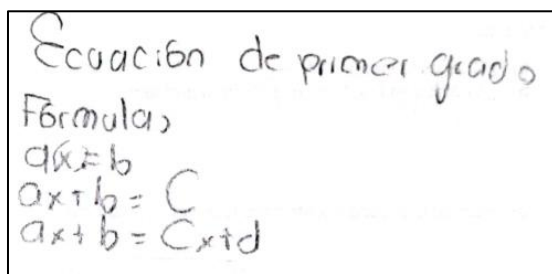 Ecuación de primer grado
Fórmulas
ax = b
ax + b = C
ax + b = Cx + d